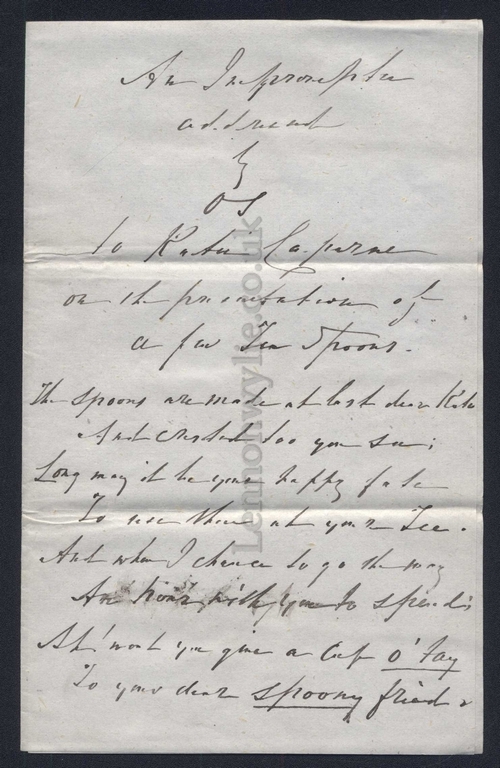 An Impromptu
address
by
OS
to Katie Caparne
on the presentation of
a few Tea Spoons.
The spoons are made at last dear Kate
And crested too you see;
Long may it be your happy fate
To use them at your Tea.
And when I chance to go the way
An hour with you to spend
Ah! wont you give a Cup o' Tay
To your dear spoony friend
Lennonwylie.co.uk